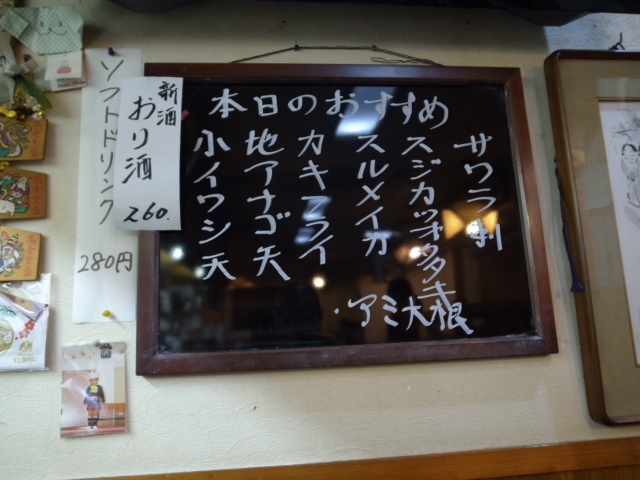 本日のおすすめ
サワラ刺
スジカツオタタキ
スルメイカ
カキフライ
地アナゴ天
小イワシ天
・アミ大根
新酒
おり酒
260.
ソフトドリンク
280円